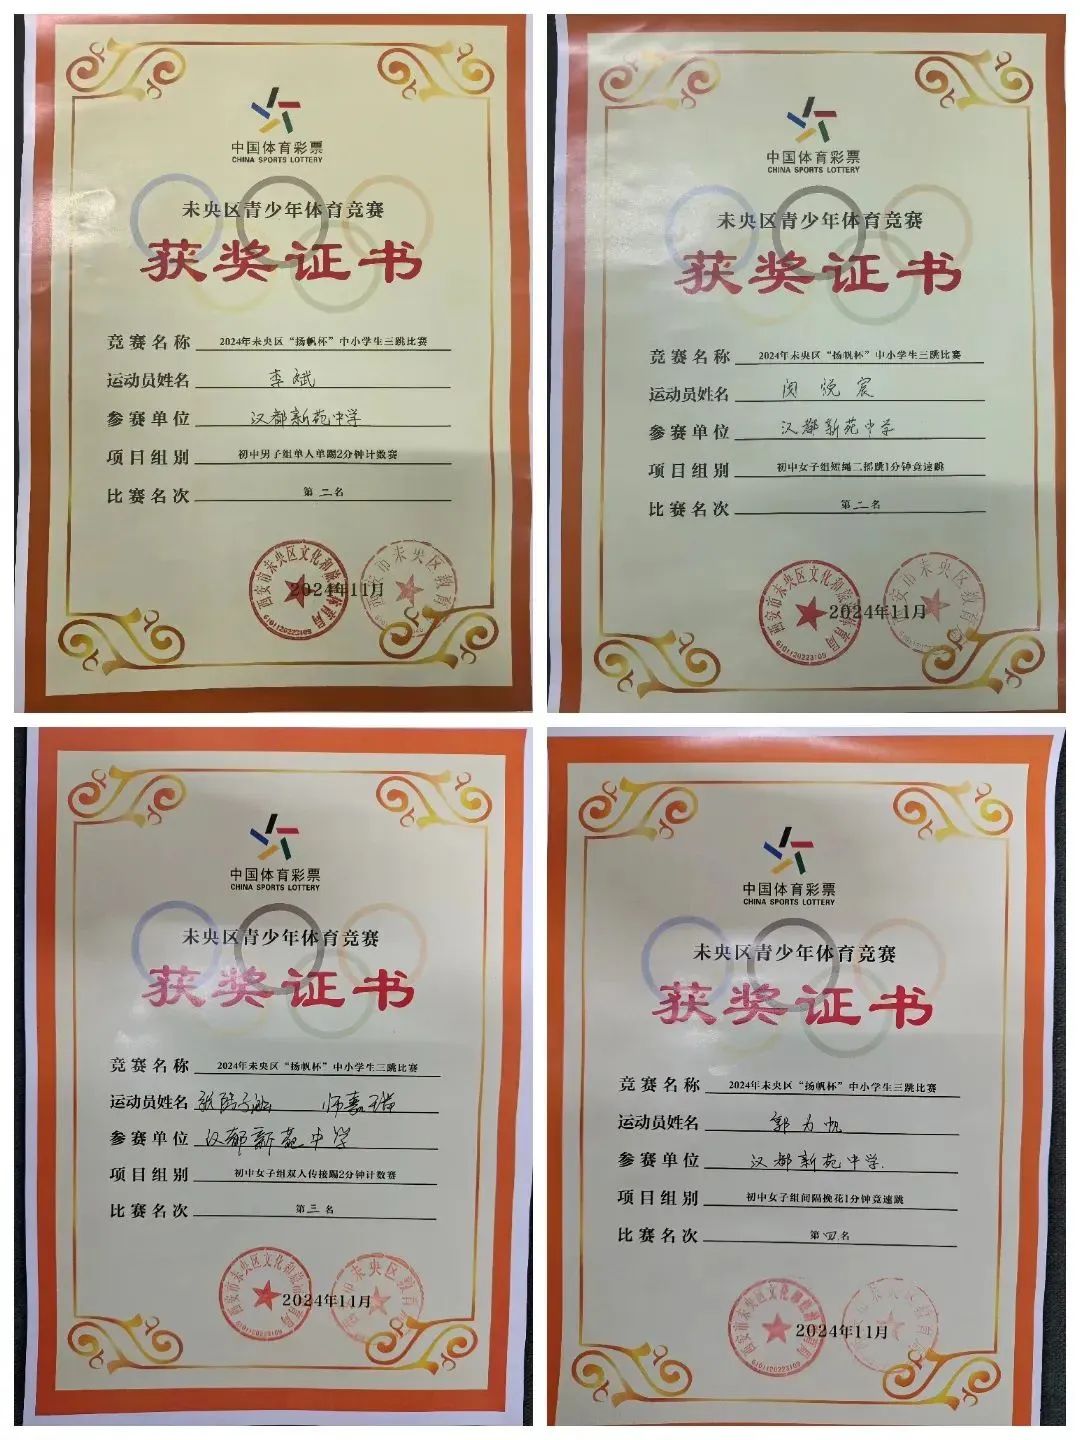 中国体育彩票
CHINA SPORTS LOTTERY
未央区青少年体育竞赛
获奖证书
竞赛名称 2024年未央区“扬帆杯”中小学生三跳比赛
运动员姓名 李斌
参赛单位 汉都新苑中学
项目组别 初中男子组单人单踢2分钟计数赛
比赛名次 第二名
西安市未央区文化和旅游体育局
西安市未央区教育局
2024年11月
6101120223109
中国体育彩票
CHINA SPORTS LOTTERY
未央区青少年体育竞赛
获奖证书
竞赛名称 2024年未央区“扬帆杯”中小学生三跳比赛
运动员姓名 闵悦宸
参赛单位 汉都新苑中学
项目组别 初中女子组短绳二摇跳1分钟竞速跳
比赛名次 第二名
西安市未央区文化和旅游体育局
西安市未央区教育局
2024年11月
6101120223109
中国体育彩票
CHINA SPORTS LOTTERY
未央区青少年体育竞赛
获奖证书
竞赛名称 2024年未央区“扬帆杯”中小学生三跳比赛
运动员姓名 师嘉
参赛单位 汉都新苑中学
项目组别 初中女子组双人传接踢2分钟计数赛
比赛名次 第三名
西安市未央区文化和旅游体育局
西安市未央区教育局
2024年11月
6101120223109
中国体育彩票
CHINA SPORTS LOTTERY
未央区青少年体育竞赛
获奖证书
竞赛名称 2024年未央区“扬帆杯”中小学生三跳比赛
运动员姓名 郭为帆
参赛单位 汉都新苑中学
项目组别 初中女子组间隔挽花1分钟竞速跳
比赛名次 第四名
西安市未央区文化和旅游体育局
未央区教育
2024年11月
6101120223109